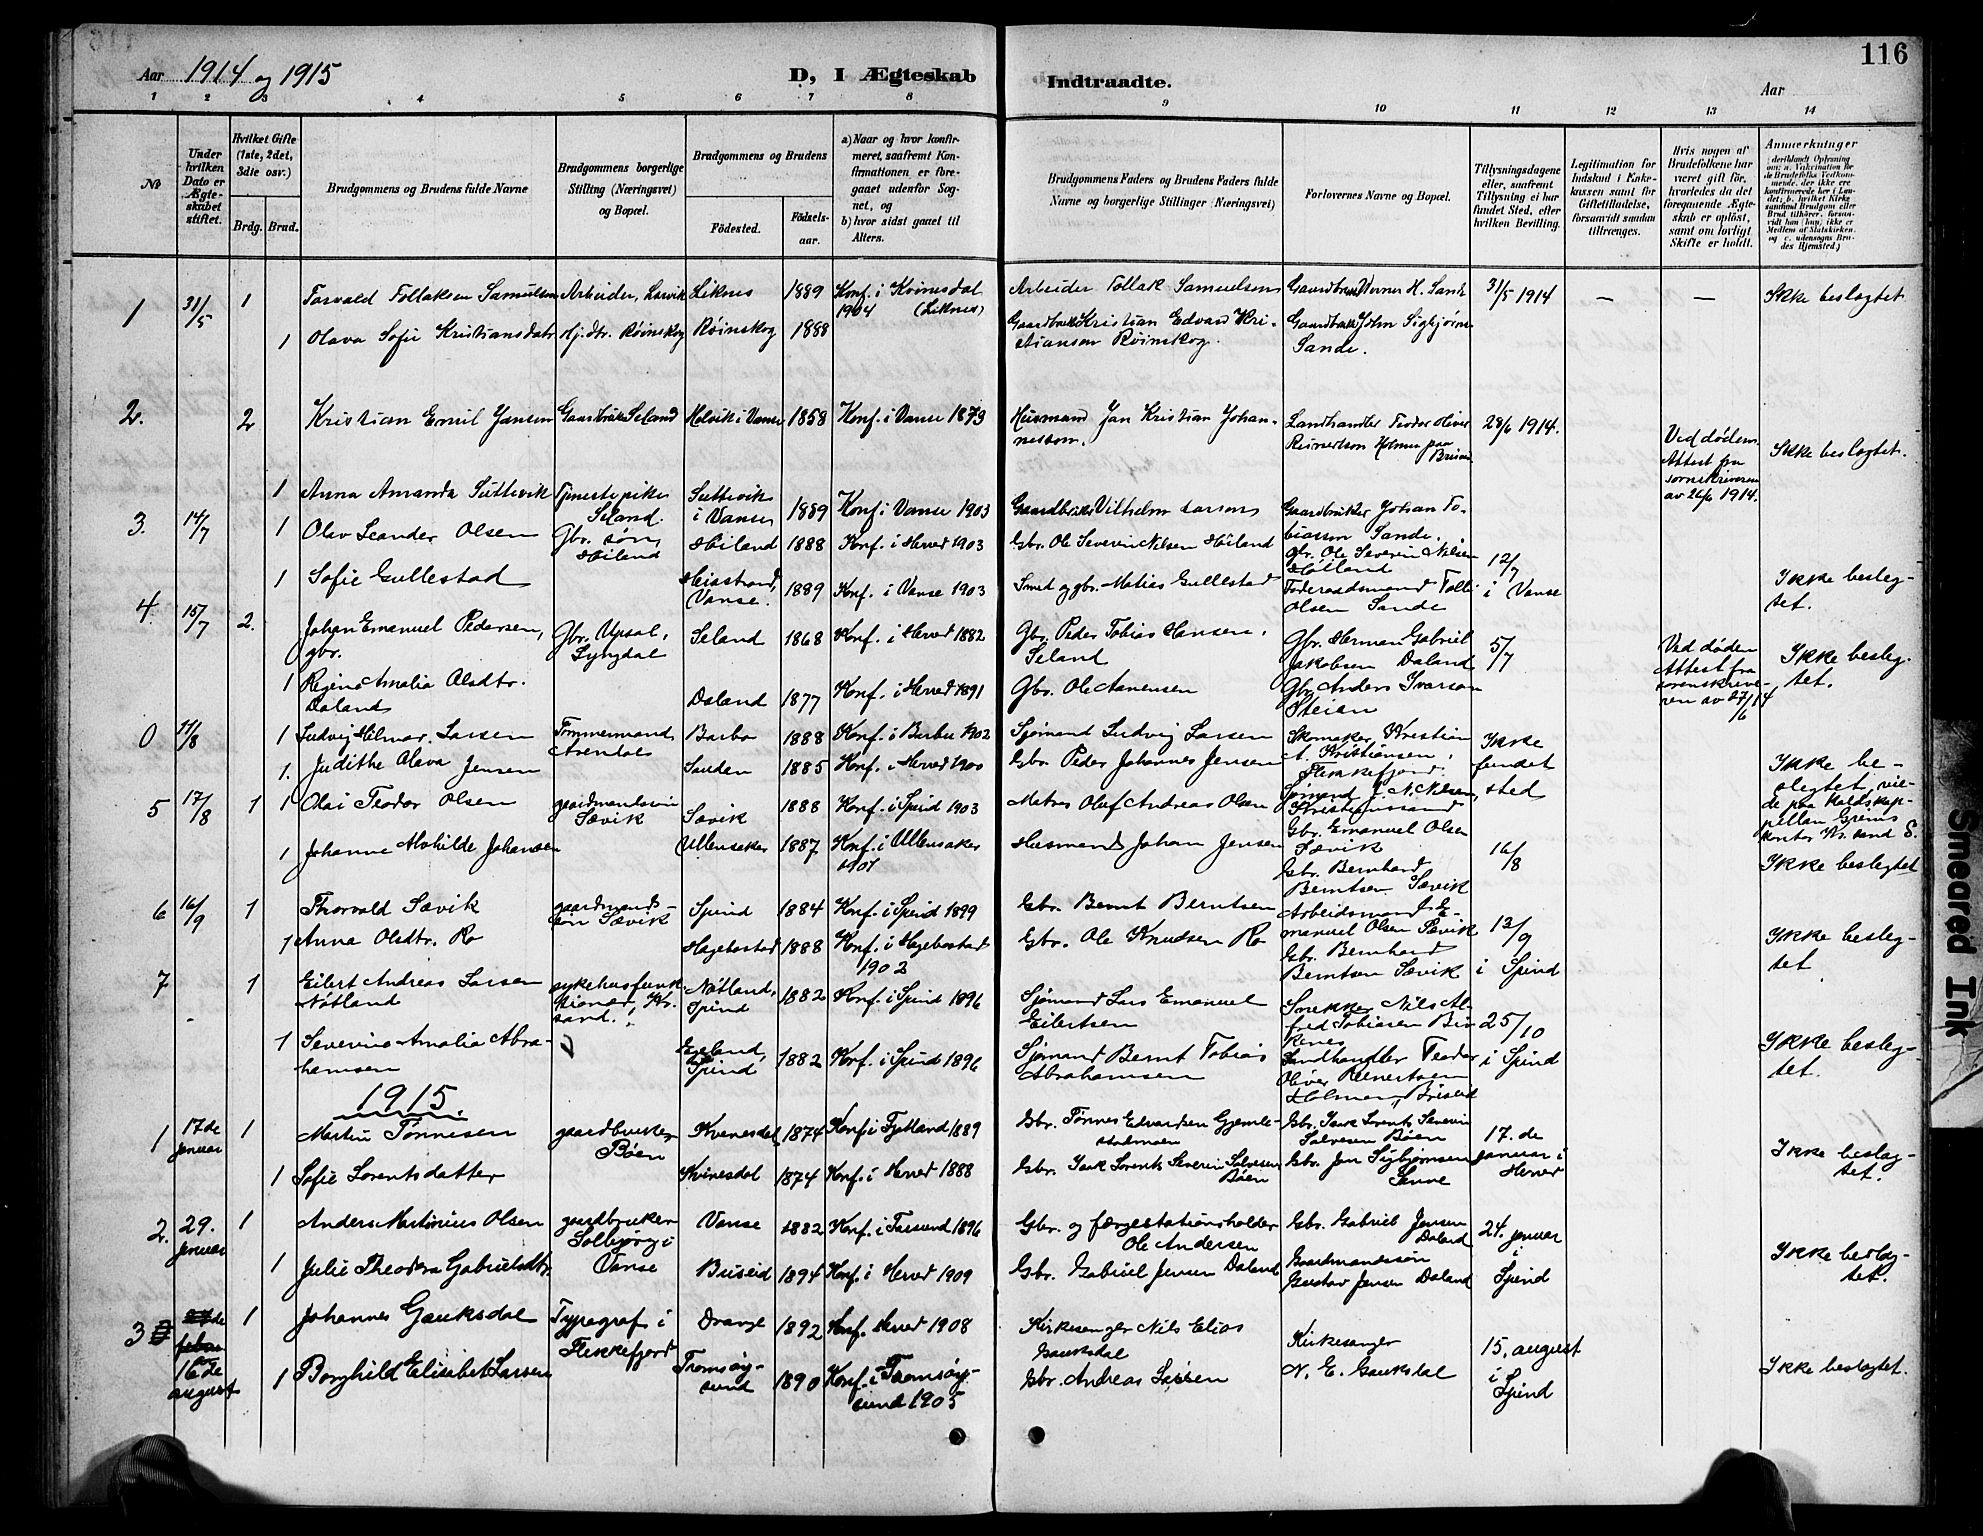 116
Aar 1914 og 1915
D, I Ægteskab
Indtraadte.
Aar
1 2 3 4 5 6 7 8 9 10 11 12 13 14
№
Under hvilken Dato er Ægteskabet stiftet.
Hvilket Gifte (1ste, 2det, 3die osv.)
Brdg. Brud.
Brudgommens og Brudens fulde Navne
Brudgommens borgerlige Stilling (Næringsvei) og Bopæl.
Brudgommens og Brudens
Födested.
Födselsaar.
a) Naar og hvor konfirmeret, saafremt Konfirmationen er foregaaet udenfor Sognet, og
b) hvor sidst gaaet til Alters.
Brudgommens Faders og Brudens Faders fulde Navne og borgerlige Stillinger (Næringsvei)
Forlovernes Navne og Bopæl.
Tillysningsdagene eller, saafremt Tillysning ei har fundet Sted, efter hvilken Bevilling.
Legitimation for Indskud i Enkekassen samt for Giftetilladelse, forsaavidt saadan tiltrænges.
Hvis nogen af Brudefolkene har været gift för, hvorledes da det foregaaende Ægteskab er oplöst, samt om lovligt Skifte er holdt.
Anmærkninger
1 31/5 1 Torvald Tollaksen Samuelsen Arbeider, Larvik Liknes 1889 Konf. i Kvinesdal 1904 (Liknes) Arbeider Tollak Samuelsen Gaardbr. Werner H. Sande 31/5 1914 — — Ikke beslegtet
1 Olava Sofie Kristiansdatr Hj.dtr. Røinskog Røinskog 1888 Gaardbruk. Kristian Edvard Kristiansen Røinskog. Gaardbruk. John Sigbjørns. Sande.
2. 2 Kristian Emil Jansen Gaardbruk. Seland Helvik i Vanse 1858 Konf. i Vanse 1873 Husmand Jan Kristian Johannessen. Landhandler Teodor Oliver Reinertsen Holmen paa Briseid 28/6 1914. Ved døden. Attest fra sorenskriveren av 26/6 1914. Ikke beslegtet.
1 Anna Amanda Suttevik Tjenestepike Seland. Suttevik i Vanse 1889 Konf. i Vanse 1903 Gaardbruk. Vilhelm Larsen Gaardbruker Johan Tobiassen Sande.
3. 14/7 1 Olav Leander Olsen Gbr. søn, Høiland Høiland 1888 Konf. i Herred 1903 Gbr. Ole Severin Nilsen Høiland Gbr. Ole Severin Nilsen Høiland 12/7 i Vanse Ikke beslegtet.
1 Sofie Gullestad Vanse. 1889 Konf. i Vanse 1903 Smed og gbr. Matias Gullestad Føderaadsmand Tolli Olsen Sande
4. 15/7 2. Johan Emanuel Pedersen, gbr. Gbr. Upsal, Lyngdal Seland 1868 Konf. i Herred 1882 Gbr. Peder Tobias Hansen, Seland Gbr. Herman Gabriel Jakobsen Daland 5/7 Ved døden Attest fra sorenskriveren av 27/6 14 Ikke beslegtet.
1 Regine Amalia Olsdtr. Daland Daland 1877 Konf. i Herred 1891 Gbr. Ole Aanensen Gbr. Anders Ivarsen Steien
0 11/8 1 Ludvig Hilmar Larsen Tømmermand, Arendal Barbo 1888 Konf. i Barbu 1902 Sjømand Ludvig Larsen Skomaker Kristian A. Kristiansen, Flekkefjord. Ikke fundet sted
1. Judithe Olava Jensen Sanden 1885 Konf. i Herred 1900 Gbr. Peder Johannes Jensen Sjømand N. Nilsen, Kristianssand Ikke beslegtet, viede paa Kr.sand S.
5 17/8 1 Olai Teodor Olsen gaardmandssøn Sævik Sævik 1888 Konf. i Spind 1903 Matros Oluf Andreas Olsen Gbr. Emanuel Olsen Sævik 16/8 Ikke beslegtet
1 Johanne Mathilde Johansen Ullensaker 1887 Konf. i Ullensaker 1901 Husmand Johan Jensen Gbr. Bernhard Berntsen Sævik
6 16/9 1 Thorvald Sævik gaardmandssøn Sævik Spind 1884 Konf. i Spind 1899 Gbr. Bernt Berntsen Arbeidsmand Emanuel Olsen Sævik 13/9 i Spind Ikke beslegtet
1 Anna Olsdtr. Ro Hægebostad 1888 Konf. i Hægebostad 1902 Gbr. Ole Knudsen Ro Gbr. Bernhard Berntsen Sævik
7 1 Eilert Andreas Larsen Nötland sykehusfunktionær, Kr.sand. Nötland, Spind 1882 Konf. i Spind 1896 Sjømand Lars Emanuel Eilertsen Snekker Nils Alfred Tobiasen Birkenes 25/10 i Spind Ikke beslegtet.
1 Severine Amalia Abrahamsen Eseland, Spind 1882 Konf. i Spind 1896 Sjømand Bernt Tobias Abrahamsen Landhandler Teodor Oliver Reinertsen Holmen, Briseid
1915
1 17de januar 1 Martin Tønnesen gaardbruker Bøen Kvinesdal 1874 Konf. i Fjotland 1889 Gbr. Tønnes Edvardsen Gbr. Isak Lorents Severin Salvesen Bøen 17. de januar i Herred Ikke beslegtet.
1 Sofie Lorentsdatter Kvinesdal 1874 Konf. i Herred 1888 Gbr. Isak Lorents Severin Salvesen Bøen Gbr. Jan Sigbjørnsen Sande
2. 29. januar 1 Anders Martinius Olsen gaardbruker Solbjørg i Vanse Vanse 1882 Konf. i Farsund 1896 Gbr. og færgestationsholder Ole Andersen Gbr. Gabriel Jensen Daland 24. januar i Spind Ikke beslegtet.
1 Julie Theodora Gabrielsdtr. Buseid 1894 Konf. i Herred 1909 Gbr. Gabriel Jensen Daland Gaardmandssøn Gustav Jensen Daland
3 16de august 1 Johannes Gauksdal Typograf i Flekkefjord Drange 1892 Konf. Herred 1908 Kirkesanger Nils Elias Gauksdal Kirkesanger N. E. Gauksdal 15. august i Spind Ikke beslegtet.
1 Borghild Elisabet Larsen Tromsøysund 1890 Konf. i Tromsøysund 1905 Gbr. Andreas Larsen
Smeared Ink